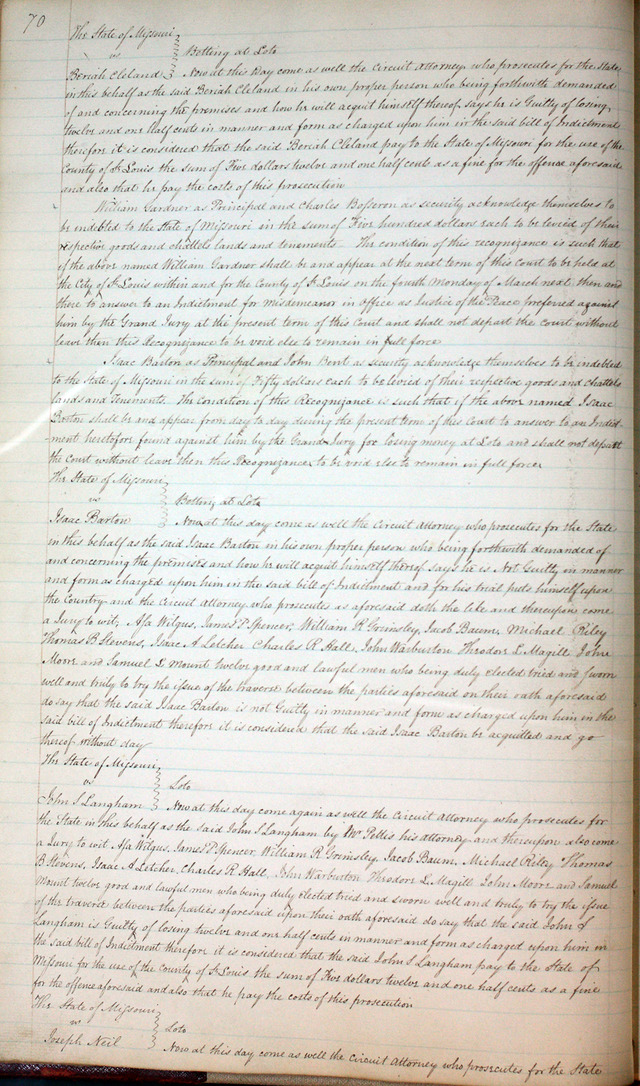 70
The State of Missouri
vs Betting at Loto
Beriah Cleland Now at this Day come as well the Circuit Attorney who prosecutes for the State
in this behalf as the said Beriah Cleland in his own proper person who being forthwith demanded
of and concerning the premises and how he will acquit himself thereof says he is Guilty of losing
twelve and one half cents in manner and form as charged upon him in the said bill of Indictment
therefore it is considered that the said Beriah Cleland pay to the State of Missouri for the use of the
County of St Louis the sum of Five dollars twelve and one half cents as a fine for the offence aforesaid
and also that he pay the costs of this prosecution
William Gardner as Principal and Charles Bosseron as security acknowledge themselves to
be indebted to the State of Missouri in the sum of Five hundred dollars each to be levied of their
respective goods and chattels lands and tenements The condition of this recognizance is such that
if the above named William Gardner shall be and appear at the next term of this court to be held at
the City of St Louis within and for the County of St Louis on the fourth Monday of March next then and
there to answer to an Indictment for Misdemeanor in Office as Justice of the Peace preferred against
him by the Grand Jury at the present term of this Court and shall not depart the Court without
leave then this Recognizance to be void else to remain in full force
Isaac Barton as Principal and John Bent as security acknowledge themselves to be indebted
to the State of Missouri in the sum of Fifty dollars each to be levied of their respective goods and chattels
lands and Tenements. The Condition of this Recognizance is such that if the above named Isaac
Barton shall be and appear from day to day during the present term of this Court to answer to an Indict-
ment heretofore found against him by the Grand Jury for losing money at Loto and shall not depart
the Court without leave then this Recognizance to be void else to remain in full force
The State of Missouri
vs Betting at Loto
Isaac Barton Now at this day come as well the Circuit Attorney who prosecutes for the State
in this behalf as the said Isaac Barton in his own proper person who being forthwith demanded of
and concerning the premises and how he will acquit himself thereof says he is Not Guilty in manner
and form as charged upon him in the said bill of Indictment and for his trial puts himself upon
the Country and the Circuit Attorney who prosecutes as aforesaid doth the like and thereupon come
a Jury to wit, Asa Wilgus, James P Spencer, William R Grimsley, Jacob Baum, Michael Riley
Thomas B Stevens, Isaac A Letcher Charles R Hall, John Warburton Theodore L Magill John
Moore and Samuel L Mount twelve good and lawful men who being duly elected tried and sworn
well and truly to try the issue of the traverse between the parties aforesaid on their oath aforesaid
do say that the said Isaac Barton is not Guilty in manner and form as charged upon him in the
said bill of Indictment therefore it is considered that the said Isaac Barton be acquitted and go
thereof without day
The State of Missouri
vs Loto
John S Langham Now at this day come again as well the Circuit Attorney who prosecutes for
the State in this behalf as the said John S Langham by his attorney and thereupon also come
a Jury to wit Asa Wilgus, James P Spencer, William R Grimsley, Jacob Baum, Michael Riley Thomas
B Stevens, Isaac A Letcher, Charles R Hall, John Warburton Theodore L Magill John Moore and Samuel
Mount twelve good and lawful men who being duly elected tried and sworn well and truly to try the issue
of the traverse between the parties aforesaid upon their oath aforesaid do say that the said John S
Langham is Guilty of losing twelve and one half cents in manner and form as charged upon him in
the said bill of Indictment therefore it is considered that the said John S Langham pay to the State of
Missouri for the use of the County of St Louis the sum of Five dollars twelve and one half cents as a fine
for the offence aforesaid and also that he pay the costs of this prosecution
The State of Missouri
vs Loto
Joseph Neil Now at this day come as well the Circuit Attorney who prosecutes for the State